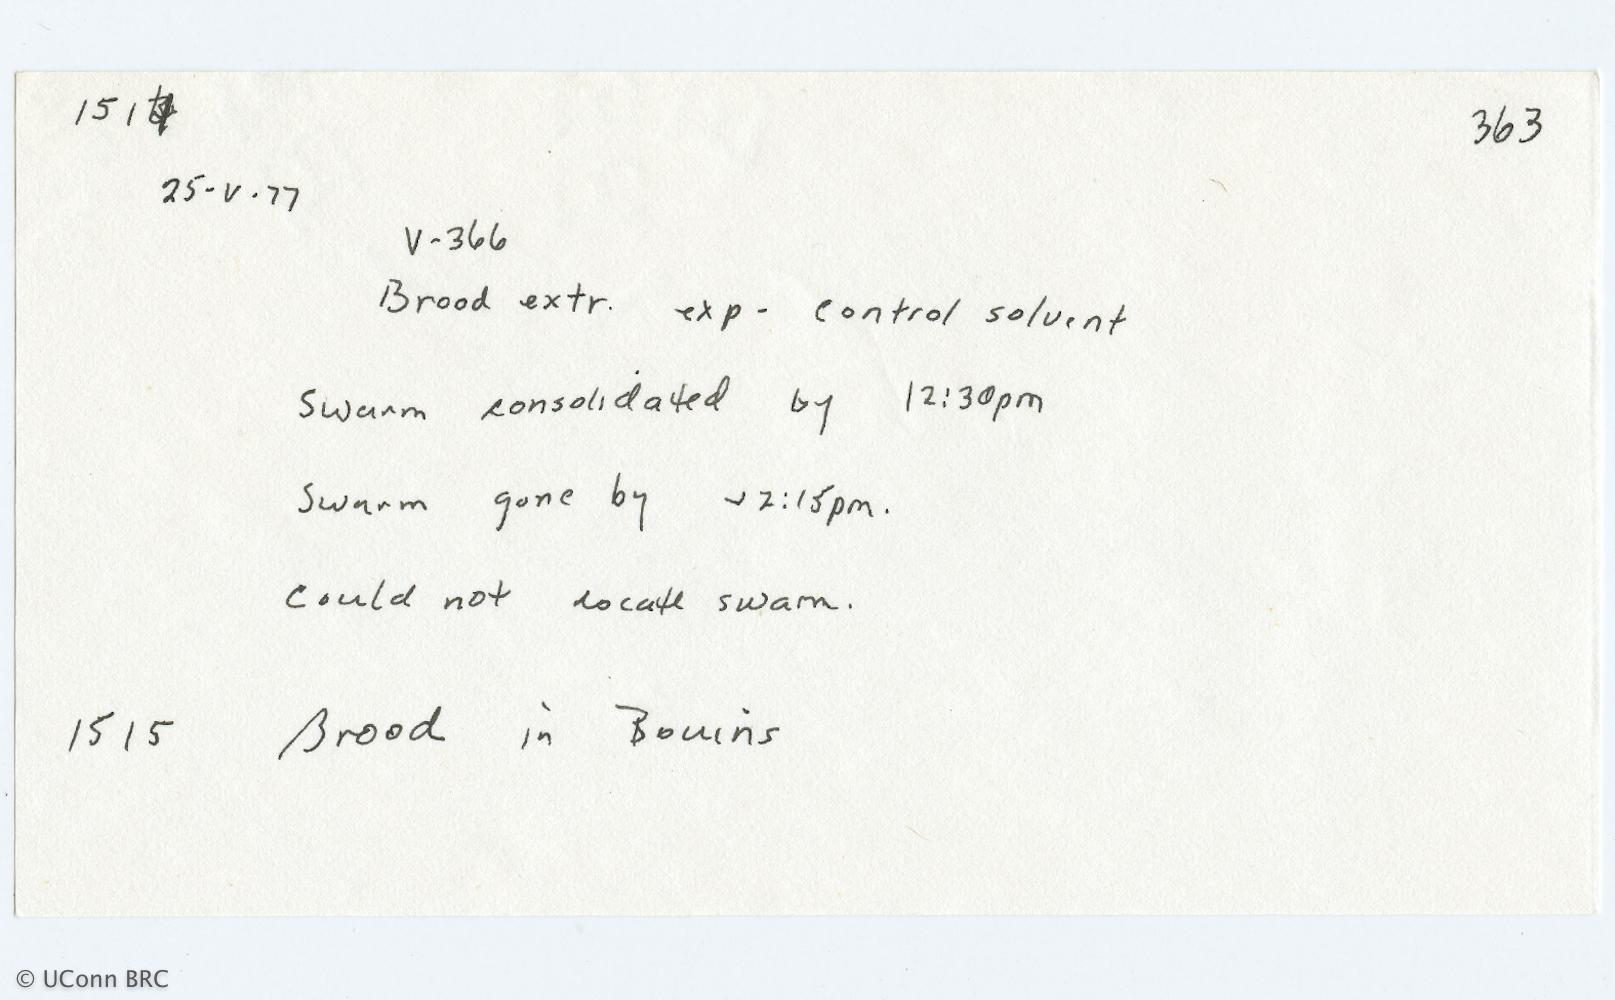 1514
363
25-V-77
V-366
Brood extr. exp - control solvent
Swarm consolidated by 12:30pm
Swarm gone by ~2:15pm.
Could not locate swarm.
1515 Brood in Bouins
© UConn BRC